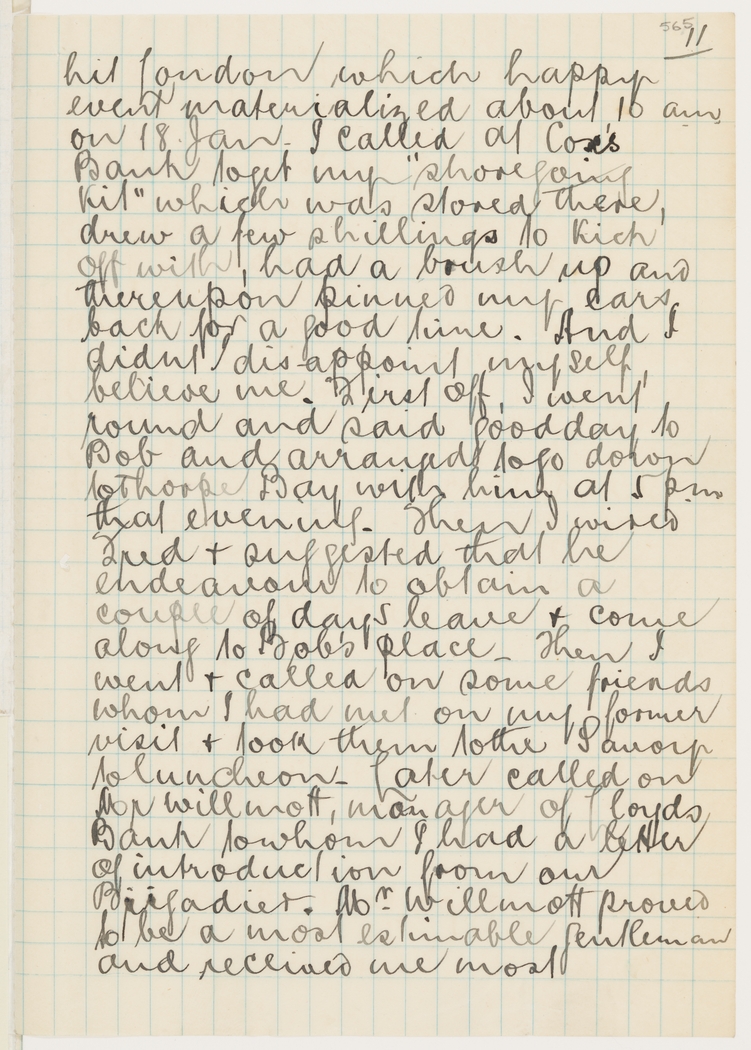 565
11
hit London which happy
event materialized about 10 am
on 18 Jan. I called at Cox's
Bank to get my "shoregoing
Kit" which was stored there,
drew a few shillings to kick
off with, had a brush up and
thereupon pinned my ears
back for a good time. And I
didnt disappoint myself,
believe me. First off, I went
round and said goodday to
Bob and arranged to go down
to Thorpe Bay with him at 5 pm
that evening. Then I wired
Fred + suggested that he
endeavour to obtain a
couple of days leave + come
along to Bob's place. Then I
went + called on some friends
whom I had met on my former
visit + took them to the Savoy
to luncheon. Later called on
Mr Willmott, manager of Lloyds
Bank to whom I had a letter
of introduction from our
Brigadier. Mr. Willmott proved
to be a most estimable gentleman
and received me most